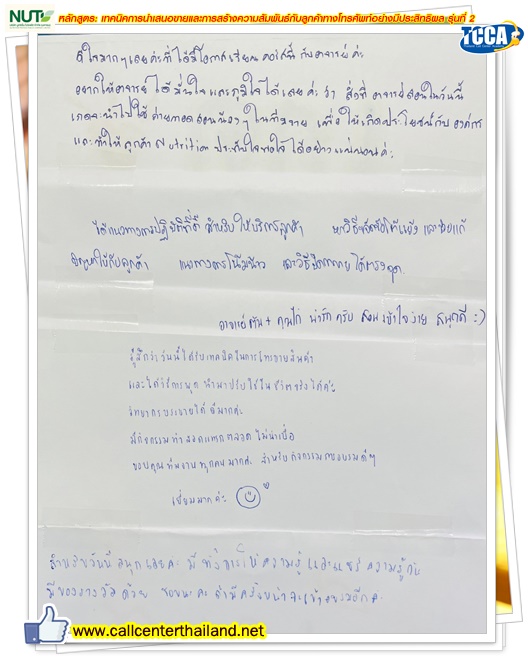 NUT
หลักสูตร: เทคนิคการนำเสนอขายและการสร้างความสัมพันธ์กับลูกค้าทางโทรศัพท์อย่างมีประสิทธิผล รุ่นที่ 2
TCCA
ดีใจมากๆเลยค่ะที่ได้มีโอกาสเรียนคอร์สนี้กับอาจารย์ค่ะ
อยากให้อาจารย์ได้มั่นใจและภูมิใจได้เลยค่ะว่า สิ่งที่อาจารย์สอนในวันนี้
เกดจะนำไปใช้ถ่ายทอดสอนน้องๆในทีมขาย เพื่อให้เกิดประโยชน์กับองค์กร
และทำให้ลูกค้า Nutrition ประทับใจพอใจได้อย่างแน่นอนค่ะ
ได้แนวทางการปฏิบัติที่ดี สำหรับให้บริการลูกค้า หาวิธีขจัดข้อโต้แย้ง และช่วยแก้
ปัญหาให้กับลูกค้า แนวทางการโน้มน้าว และวิธีปิดการขายได้ตรงจุด
อาจารย์ + คุณไก่ น่ารักครับ สอนเข้าใจง่าย สนุกดี :)
รู้สึกว่าวันนี้ได้รับเทคนิคในการโทรขายสินค้า
และได้วิธีการพูด นำมาปรับใช้ในชีวิตจริงได้ค่ะ
วิทยากรบรรยายได้ดีมากค่ะ
มีกิจกรรมทำสอดแทรกตลอด ไม่น่าเบื่อ
ขอบคุณทีมงานทุกคนมากค่ะ สำหรับกิจกรรมการอบรมดีๆ
เยี่ยมมากค่ะ
สำหรับวันนี้สนุกเลยค่ะ มีทั้งการให้ความรู้ และแชร์ความรู้กัน
มีของรางวัลด้วย ชอบนะคะ ถ้ามีครั้งหน้าจะเข้าอบรมอีกค่ะ
www.callcenterthailand.net